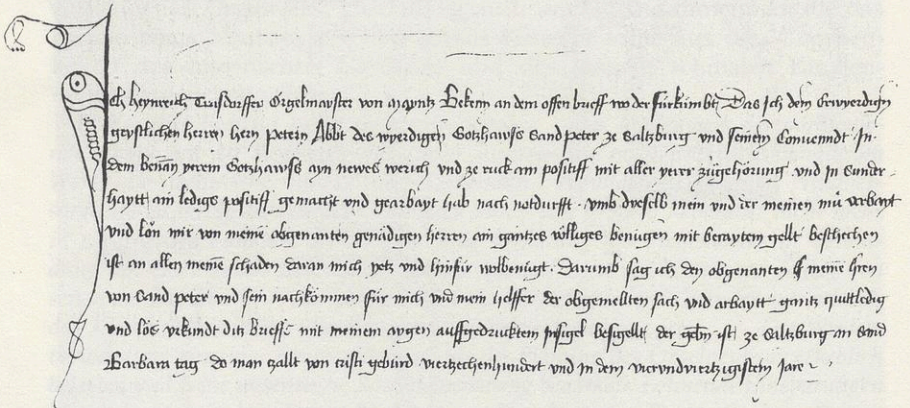 Ich heynreich Traxdorffer Orgelmayster von Mayntz Bekenn an dem offen brieff wo der furkumbt Das Ich dem Erwyerdigen
geystlichen herren hern petern Abbt des wyerdigen Gotzhawss sand peter ze Saltzburg und seinem Convenndt In
dem benan yerem Gotzhawss ayn newes werich und ze ruck ain positiff mit aller yerer zugehorung und In sunder
haytt ain ledigs positiff gemacht und gearbayt hab nach notdurfft. umb dieselb mein und der meinen mu arbayt
und lon mir von meinē obgenanten genadigen herren ain gantzes volligs benugen mit beraytem gellt beschechen
ist an allen meinē schaden daran mich yetz und hinfur wolbenugt. Darumb sag ich den obgenanten meinē hren
von sand peter und sein nachkomen fur mich und mein helffer der obgemellten sach und arbaytt gantz quitt ledig
und los urkundt ditz brieffs mit meinem aygen auffgedrucktem Insigel besigellt der gebn ist ze Saltzburg an sand
Barbara tag do man zallt von cristi geburd vierzechenhundert und in dem vierundvierzigistem Jare